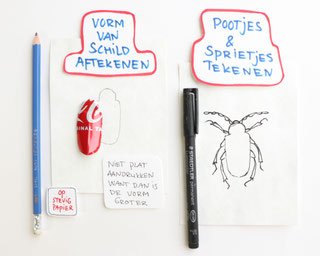 VORM
VAN
SCHILD
AFTEKENEN
POOTJES
&
SPRIETJES
TEKENEN
OP
STEVIG
PAPIER
NIET PLAT
AANDRUKKEN
WANT DAN IS
DE VORM
GROTER
STAEDTLER